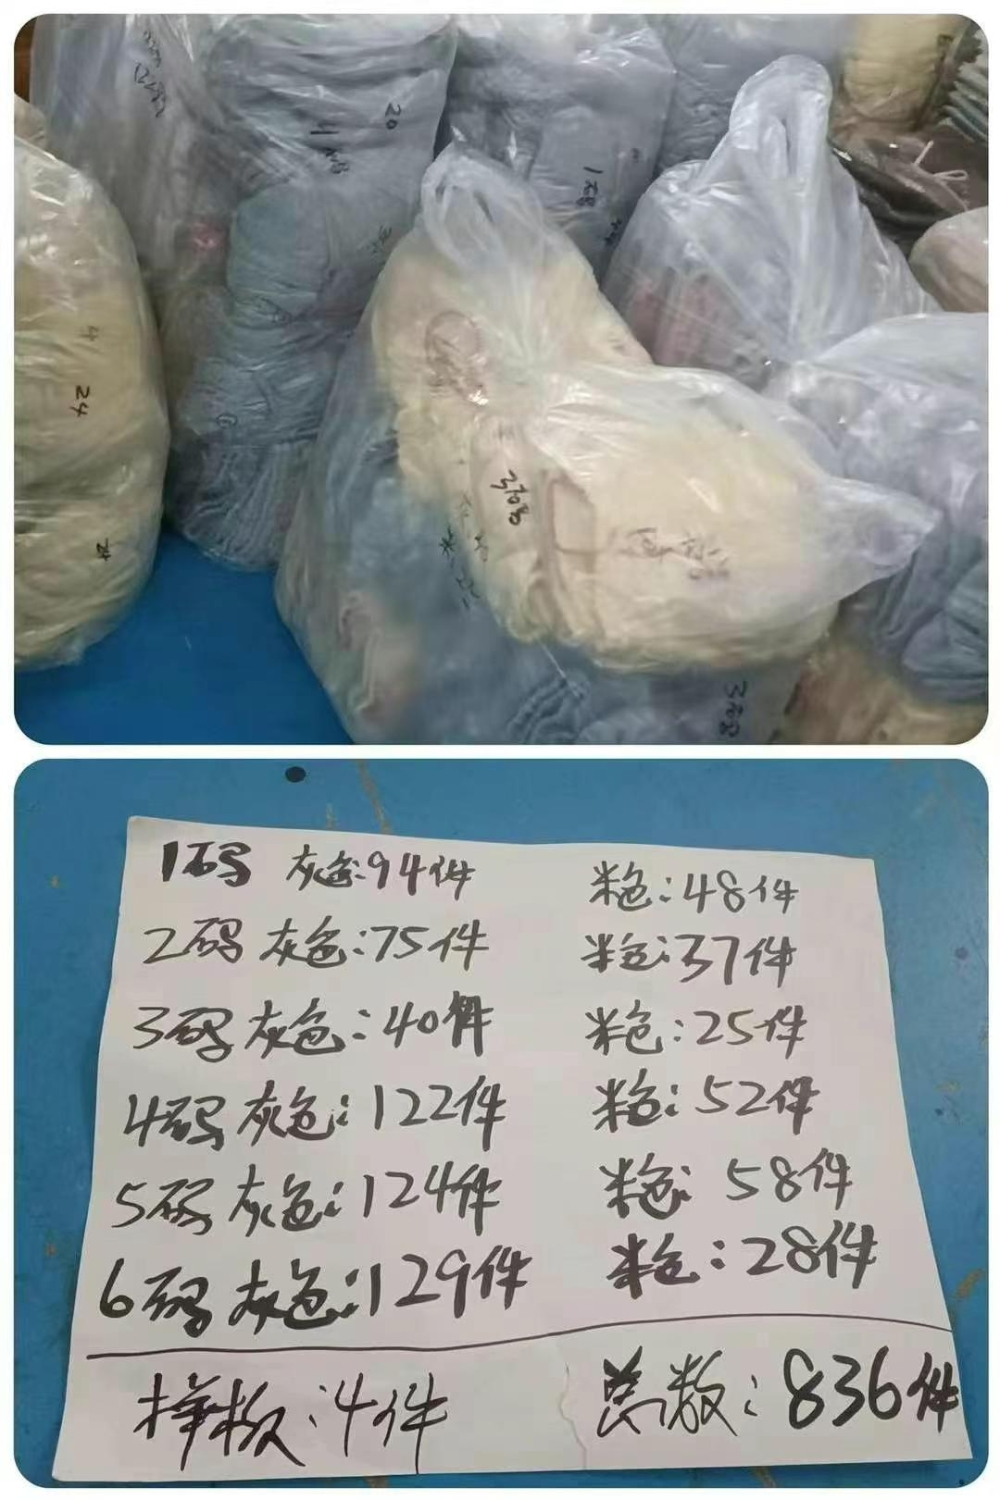 20
1码
1码
4
24
3码
1码 灰色:94件 米色:48件
2码 灰色:75件 米色:37件
3码 灰色:40件 米色:25件
4码 灰色:122件 米色:52件
5码 灰色:124件 米色:58件
6码 灰色:129件 米色:28件
样板:4件 总数:836件